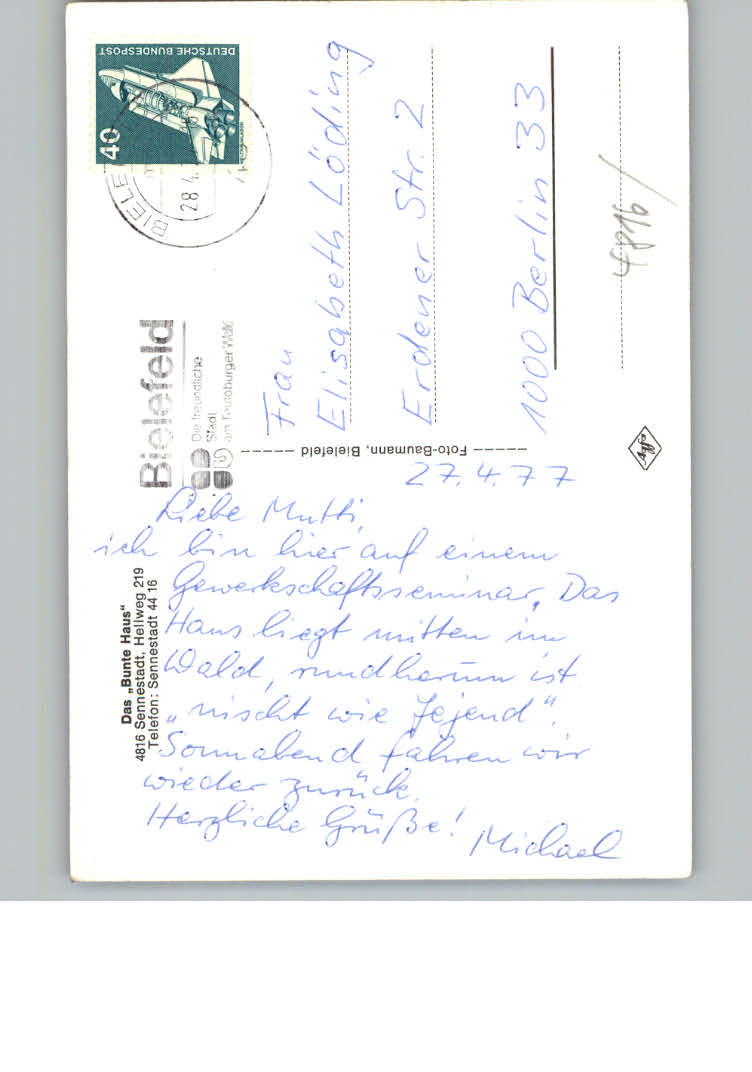 27.4.77
Liebe Mutti,
ich bin hier auf einem
Gewerkschaftsseminar. Das
Haus liegt mitten im
Wald, rundherum ist
„nischt wie Jejend".
Sonnabend fahren wir
wieder zurück.
Herzliche Grüße!
Michael
Das „Bunte Haus"
4816 Sennestadt, Hellweg 219
Telefon: Sennestadt 44 16
Foto-Baumann, Bielefeld
Agfa
DEUTSCHE BUNDESPOST
40
BIELE
28.4.
Bielefeld
Die freundliche
Stadt
am Teutoburger Wald
Frau
Elisabeth Löding
Erdener Str. 2
1000 Berlin 33
4816/